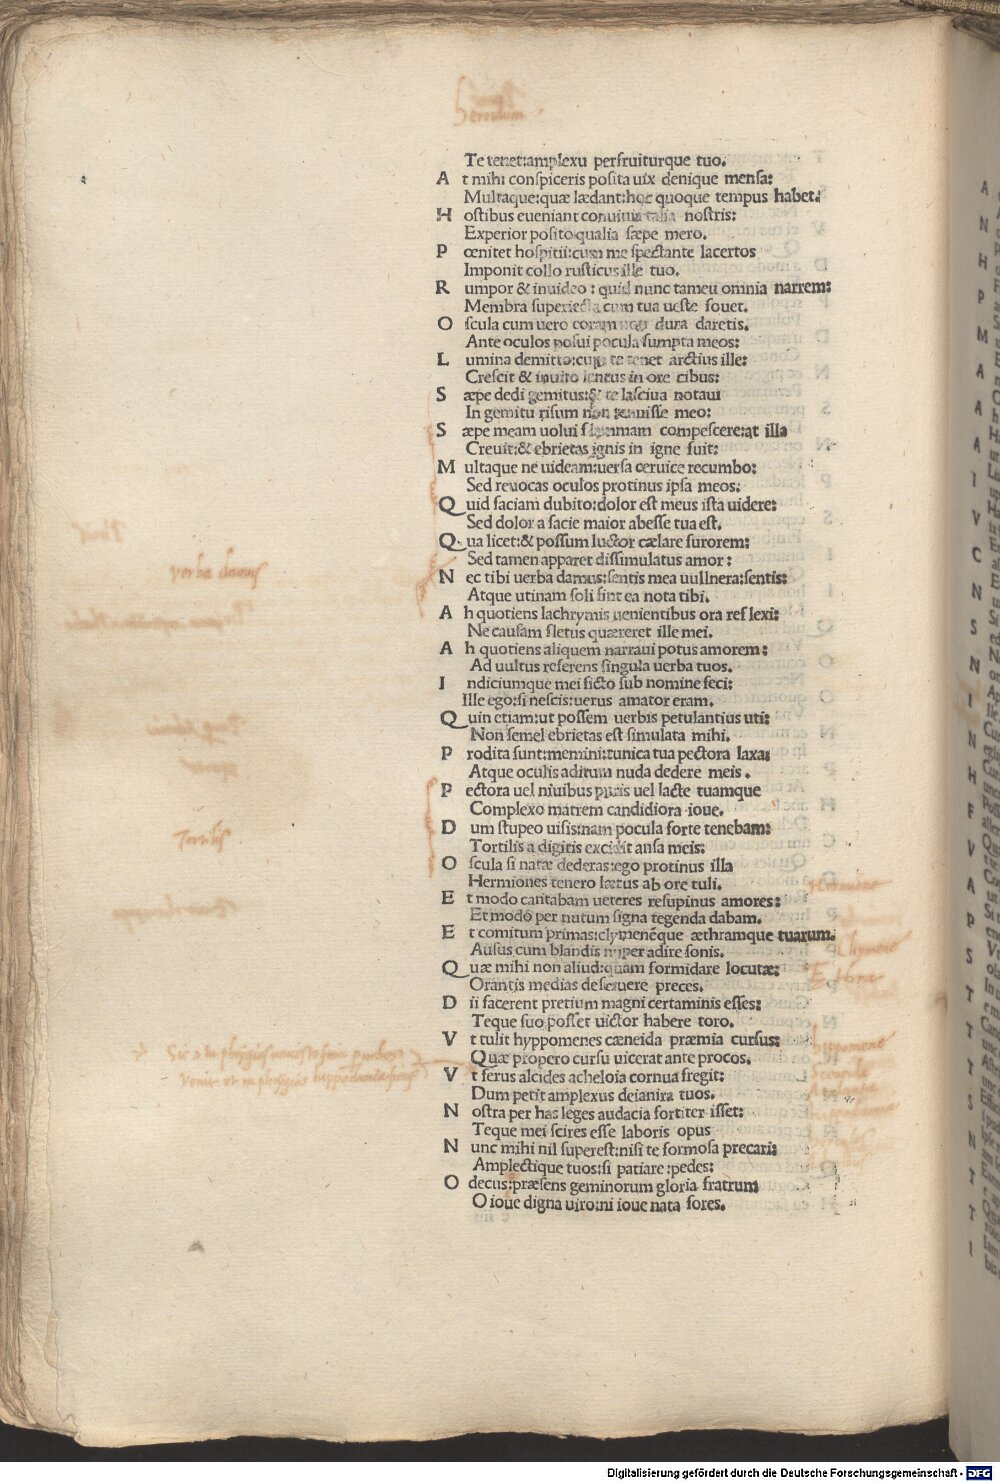 heroidum
Te tenet:amplexu perfruiturque tuo.
A t mihi conspiceris posita uix denique mensa:
Multaque:quæ lædant:hoc quoque tempus habet.
H ostibus eueniant conuiuia talia nostris:
Experior posito qualia sæpe mero.
P œnitet hospitii:cum me spectante lacertos
Imponit collo rusticus ille tuo.
R umpor & inuideo : quid nunc tameu omnia narrem:
Membra superiecta cum tua ueste fouet.
O scula cum uero coram non dura daretis.
Ante oculos posui pocula sumpta meos:
L umina demitto:cum te tenet arctius ille:
Crescit & inuito lentus in ore cibus:
S æpe dedi gemitus:& te lasciua notaui
In gemitu risum non tenuisse meo:
S æpe meam uolui flammam compescere:at illa
Creuit:& ebrietas ignis in igne fuit:
M ultaque ne uideam:uersa ceruice recumbo:
Sed reuocas oculos protinus ipsa meos:
Q uid faciam dubito:dolor est meus ista uidere:
Sed dolor a facie maior abesse tua est.
Q ua licet:& possum luctor cælare furorem:
Sed tamen apparet dissimulatus amor :
N ec tibi uerba damus:sentis mea uullnera:sentis:
verba damus
Atque utinam soli sint ea nota tibi.
A h quotiens lachrymis uenientibus ora reflexi:
Ne causam fletus quæreret ille mei.
A h quotiens aliquem narraui potus amorem:
Ad uultus referens singula uerba tuos.
I ndiciumque mei ficto sub nomine feci:
Ille ego:si nescis:uerus amator eram.
Q uin etiam:ut possem uerbis petulantius uti:
Non semel ebrietas est simulata mihi.
P rodita sunt:memini:tunica tua pectora laxa:
Atque oculis aditum nuda dedere meis .
P ectora uel niuibus puris uel lacte tuamque
Complexo matrem candidiora ioue.
D um stupeo uisis:nam pocula forte tenebam:
Tortilis
Tortilis a digitis excidit ansa meis:
O scula si natæ dederas:ego protinus illa
Hermiones tenero lætus ab ore tuli.
Hermione
E t modo cantabam ueteres resupinus amores:
Et modo per nutum signa tegenda dabam.
E t comitum primas:clymenēque æthramque tuarum.
Clymene
Ausus cum blandis nuper adire sonis.
Q uæ mihi non aliud:quam formidare locutæ:
Orantis medias deseruere preces.
D ii facerent pretium magni certaminis esses:
Teque suo posset uictor habere toro.
V t tulit hyppomenes cæneida præmia cursus:
hippomene
Quæ propero cursu uicerat ante procos.
V t ferus alcides acheloia cornua fregit:
Dum petit amplexus deianira tuos.
N ostra per has leges audacia fortiter isset:
Teque mei scires esse laboris opus
N unc mihi nil superest:nisi te formosa precari:
Amplectique tuos:si patiare :pedes:
O decus:præsens geminorum gloria fratrum
O ioue digna uiro:ni ioue nata fores.
Digitalisierung gefördert durch die Deutsche Forschungsgemeinschaft - DFG